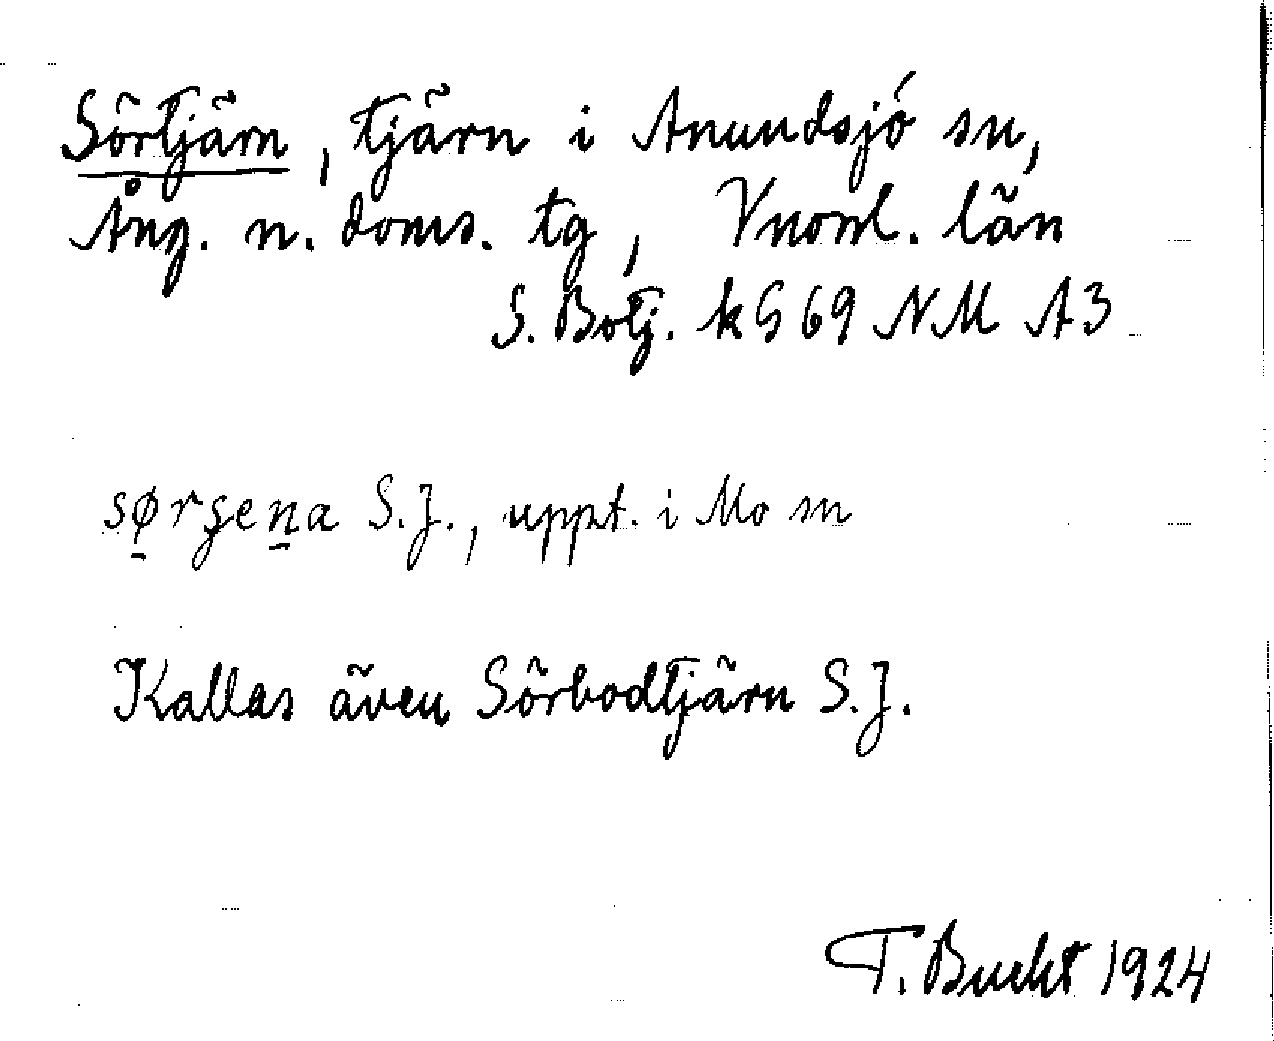 Sörtjärn, tjärn i Anundsjö sn,
Ång. n. doms. tg, Vnorrl. län
S. Botj. k G 69 NM A3
sørʂena S.J., uppt. i Mo sn
Kallas även Sörbodtjärn S.J.
T. Bucht 1924